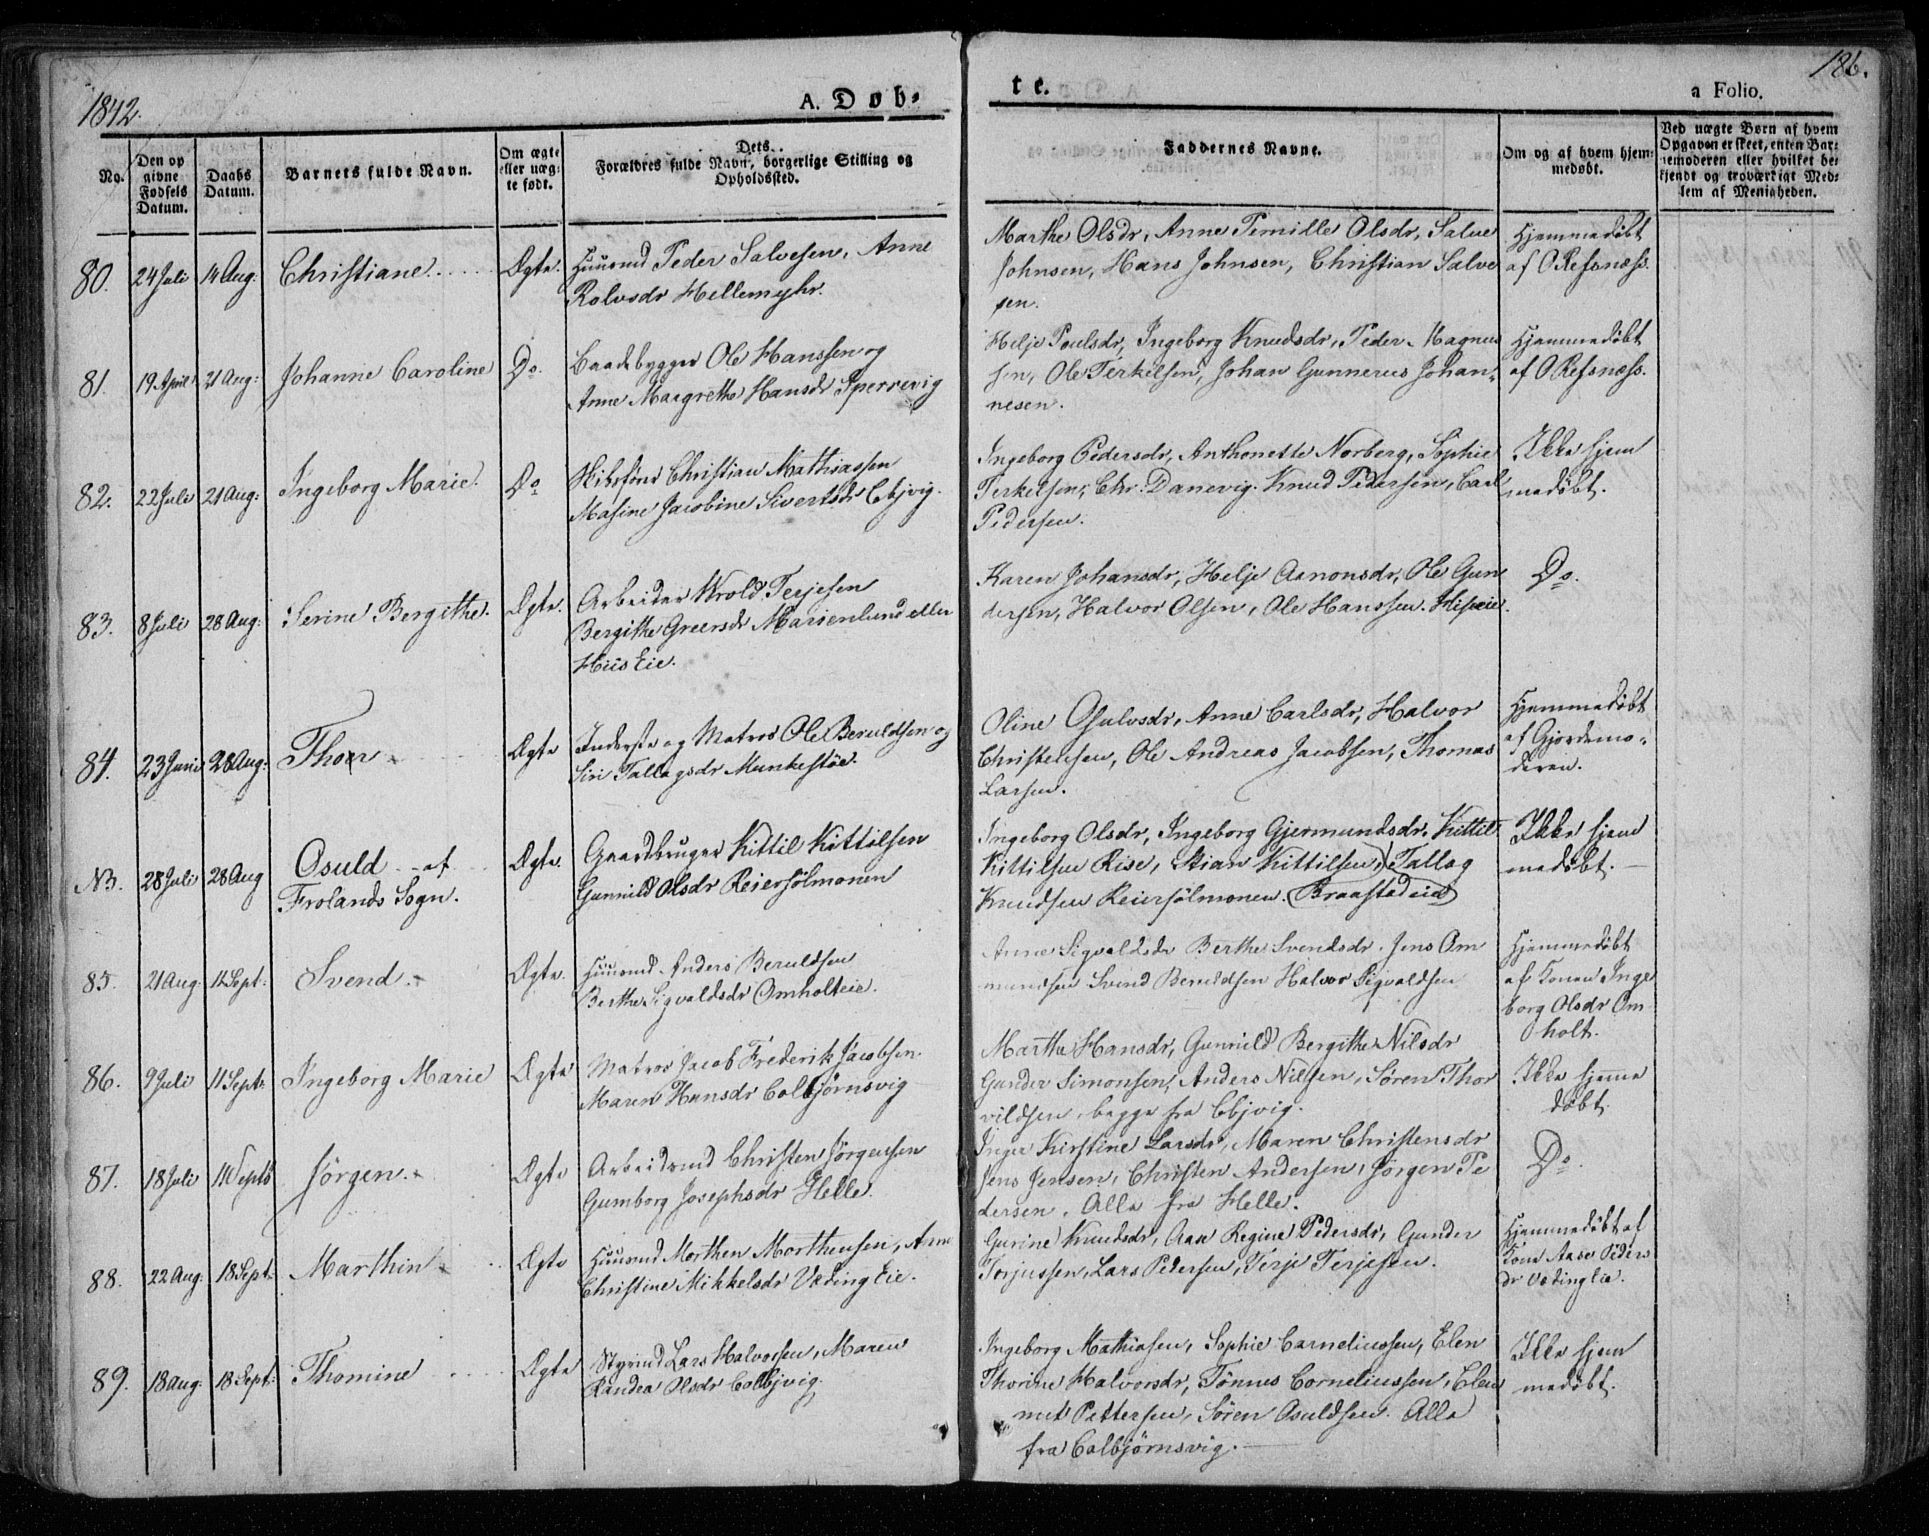 1842.
A. Døb-
te.
186.
a Folio.
No.
Den op
givne
Fødsels
Datum.
Daabs
Datum.
Barnets fulde Navn.
Om ægte
eller uæg-
te født.
Dets
Forældres fulde Navn, borgerlige Stilling og
Opholdssted.
Faddernes Navne.
Om og af hvem hjem-
medøbt.
Ved uægte Børn af hvem
Opgaven er skeet, enten Bar-
nemoderen eller hvilket be-
kjendt og troværdigt Med-
lem af Menigheden.
80. 24 Juli 14 Aug: Christiane. Ægte.
Huusmd Peder Salvesen, Anne
Rolvsdr Hellemyhr.
Marthe Olsdr, Anne Pernille Olsdr, Salve
Johnsen, Hans Johnsen, Christian Salve
sen.
Hjemmedøbt
af O Refsnæss.
81. 19 April 21 Aug: Johanne Caroline Do.
Baadebygger Ole Hanssen og
Anne Margrethe Hansdr Sperrevig
Helje Poulsdr, Ingeborg Knudsdr, Peder Magnus
sen, Ole Terkelsen, Johan Gunnerus Johan-
nesen.
Hjemmedøbt
af O Refsnæss.
82. 22 Juli 21 Aug: Ingeborg Marie. Do
Skibsføre Christian Mathiassen
Masine Jacobine Sivertsdr Ebjvig.
Ingeborg Pedersdr, Anthonette Norberg, Sophie
Terkelsen, Chr. Danevig. Knud Pedersen, Carl
Pedersen.
Ikke hjem
medøbt.
83. 8 Juli 28 Aug: Serine Bergithe. Ægte.
Arbeider Wrold Terjesen
Bergithe Greersdr Marienlund eller
Hiis Eie.
Karen Johansdr, Helje Aanonsdr, Ole Gun
dersen, Halvor Olsen, Ole Hanssen. Hiseie.
Do.
84. 23 Junii 28 Aug: Thor Ægte
Inderste og Matros Ole Beruldsen og
Siri Tallagsdr Munkestøe.
Oline Gulvsdr, Anne Carlsdr, Halvor
Christensen, Ole Andreas Jacobsen, Thomas
Larsen.
Hjemmedøbt
af Gjordemo-
deren.
NB. 28 Juli 28 Aug Osuld af
Frolands Sogn. Ægte.
Gaardbruger Kittil Kittilsen
Gunnild Olsdr Reiersølmonen
Ingeborg Olsdr, Ingeborg Gjermundsdr, Kittil
Kittilsen Rise, Stian Kittilsen, Tallag
Knudsen Reiersølmonen. (Braastad eie)
Ikke hjem
medøbt.
85. 21 Aug 11 Sept: Svend. Ægte.
Huusmd Anders Beruldsen
Berthe Sigvaldsdr Omholteie.
Anne Sigvaldsdr Berthe Svendsdr. Jens Om
mundsen Svend Beruldsen Halvor Sigvaldsen
Hjemmedøbt
af Konen Inge
borg Olsdr Om
holt.
86. 9 Juli 11 Sept: Ingeborg Marie Ægte
Matros Jacob Frederik Jacobsen
Maren Hansdr Colbjørnsvig
Marthe Hansdr, Gunnild Bergithe Nilsdr
Gunder Simonsen, Anders Nilsen, Søren Thor
vildsen, begge fra Ebjvig.
Ikke hjemme
døbt.
87. 18 Juli 11 Septb Jørgen. Ægte
Arbeidsmd Christen Jørgensen
Gumborg Josephsdr Helle.
Inger Kirstine Larsdr, Maren Christensdr
Jens Jensen, Christen Andersen, Jørgen Pe
dersen. Alle fra Helle.
Do.
88. 22 Aug: 18 Sept: Marthin Ægte
Huusmd Morthen Morthensen, Anne
Christine Mikkelsdr Vedting Eie.
Gurine Knudsdr, Aase Regine Pedersdr, Gunder
Torjussen, Lars Pedersen, Terje Terjesen.
Hjemmedøbt af
Kone Aase Peders
dr Vedting Eie.
89. 18 Aug: 18 Sept: Thomine Ægte
Styrmd Lars Halvorsen, Maren
Andrea Olsdr Colbjvig.
Ingeborg Mathiasen, Sophie Corneliussen, Elen
Thorine Halvorsdr, Tønnes Corneliussen, Clem
met Pettersen, Søren Osuldsen. Alle
fra Colbjørnsvig.
Ikke hjem
medøbt.